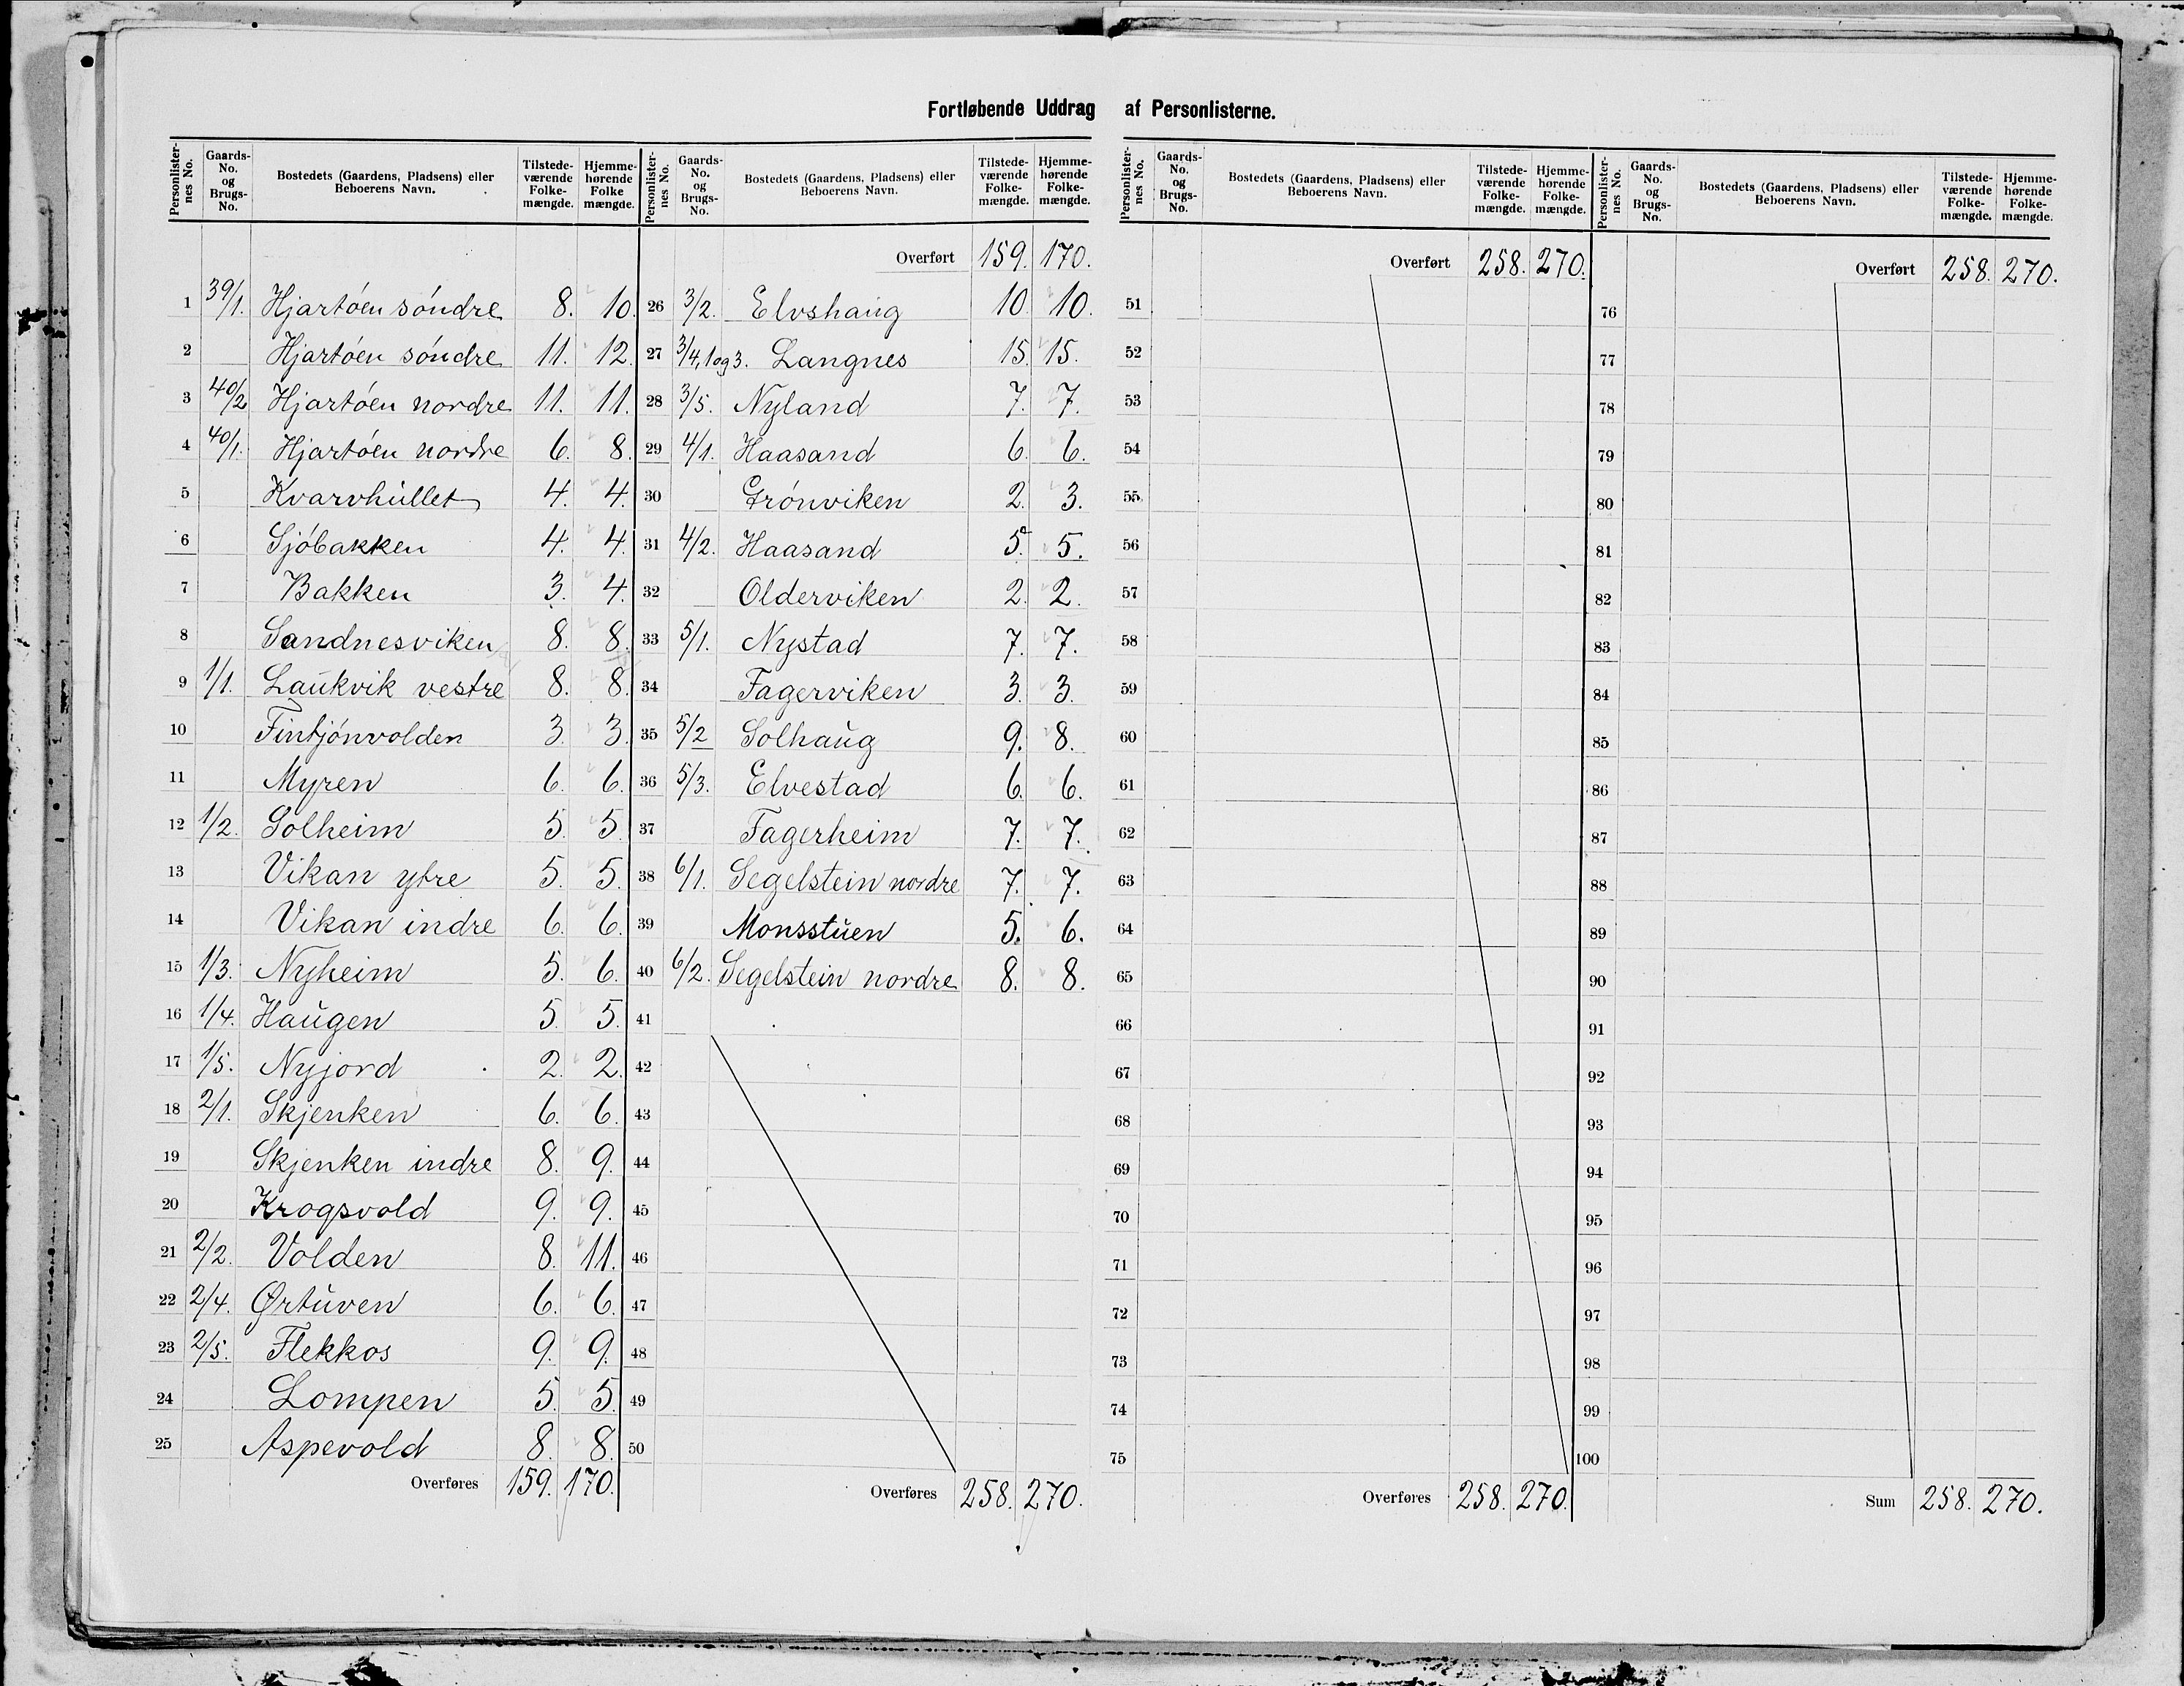 Fortløbende Uddrag af Personlisterne.
Personlister-nes No. Gaards-No. og Brugs-No. Bostedets (Gaardens, Pladsens) eller Beboerens Navn. Tilstede-værende Folke-mængde. Hjemme-hørende Folke mængde.
1 39/1. Hjartóen sóndre 8. 10.
2 Hjartóen sóndre 11. 12.
3 40/2 Hjartóen nordre 11. 11.
4 40/1. Hjartóen nordre 6. 8.
5 Kvarvhullet 4. 4.
6 Sjóbakken 4. 4.
7 Bakken 3. 4.
8 Sandnesviken 8. 8.
9 1/1. Laukvik vestre 8. 8.
10 Fintjónvolden 3. 3.
11 Myren 6. 6.
12 1/2. Solheim 5. 5.
13 Vikan ytre 5. 5.
14 Vikan indre 6. 6.
15 1/3. Nyheim 5. 6.
16 1/4. Haugen 5. 5.
17 1/5. Nyjord 2. 2.
18 2/1. Skjenken 6. 6.
19 Skjenken indre 8. 9.
20 Krogsvold 9. 9.
21 2/2. Volden 8. 11.
22 2/4. Ørtuven 6. 6.
23 2/5. Flekkos 9. 9.
24 Lompen 5. 5.
25 Aspevold 8. 8.
Overføres 159. 170.
Personlister-nes No. Gaards-No. og Brugs-No. Bostedets (Gaardens, Pladsens) eller Beboerens Navn. Tilstede-værende Folke-mængde. Hjemme-hørende Folke-mængde.
Overført 159. 170.
26 3/2. Elvshaug 10. 10.
27 3/4, 1 og 3. Langnes 15. 15.
28 3/5. Nyland 7. 7.
29 4/1. Haasand 6. 6.
30 Grónviken 2. 3.
31 4/2. Haasand 5. 5.
32 Olderviken 2. 2.
33 5/1. Nystad 7. 7.
34 Fagerviken 3. 3.
35 5/2 Solhaug 9. 8.
36 5/3. Elvestad 6. 6.
37 Fagerheim 7. 7.
38 6/1. Segelstein nordre 7. 7.
39 Monsstuen 5. 6.
40 6/2. Segelstein nordre 8. 8.
41
42
43
44
45
46
47
48
49
50
Overføres 258. 270.
Personlister-nes No. Gaards-No. og Brugs-No. Bostedets (Gaardens, Pladsens) eller Beboerens Navn. Tilstede-værende Folke-mængde. Hjemme-hørende Folke-mængde.
Overført 258. 270.
51
52
53
54
55
56
57
58
59
60
61
62
63
64
65
66
67
68
69
70
71
72
73
74
75
Overføres 258. 270.
Personlister-nes No. Gaards-No. og Brugs-No. Bostedets (Gaardens, Pladsens) eller Beboerens Navn. Tilstede-værende Folke-mængde. Hjemme-hørende Folke-mængde.
Overført 258. 270.
76
77
78
79
80
81
82
83
84
85
86
87
88
89
90
91
92
93
94
95
96
97
98
99
100
Sum 258. 270.